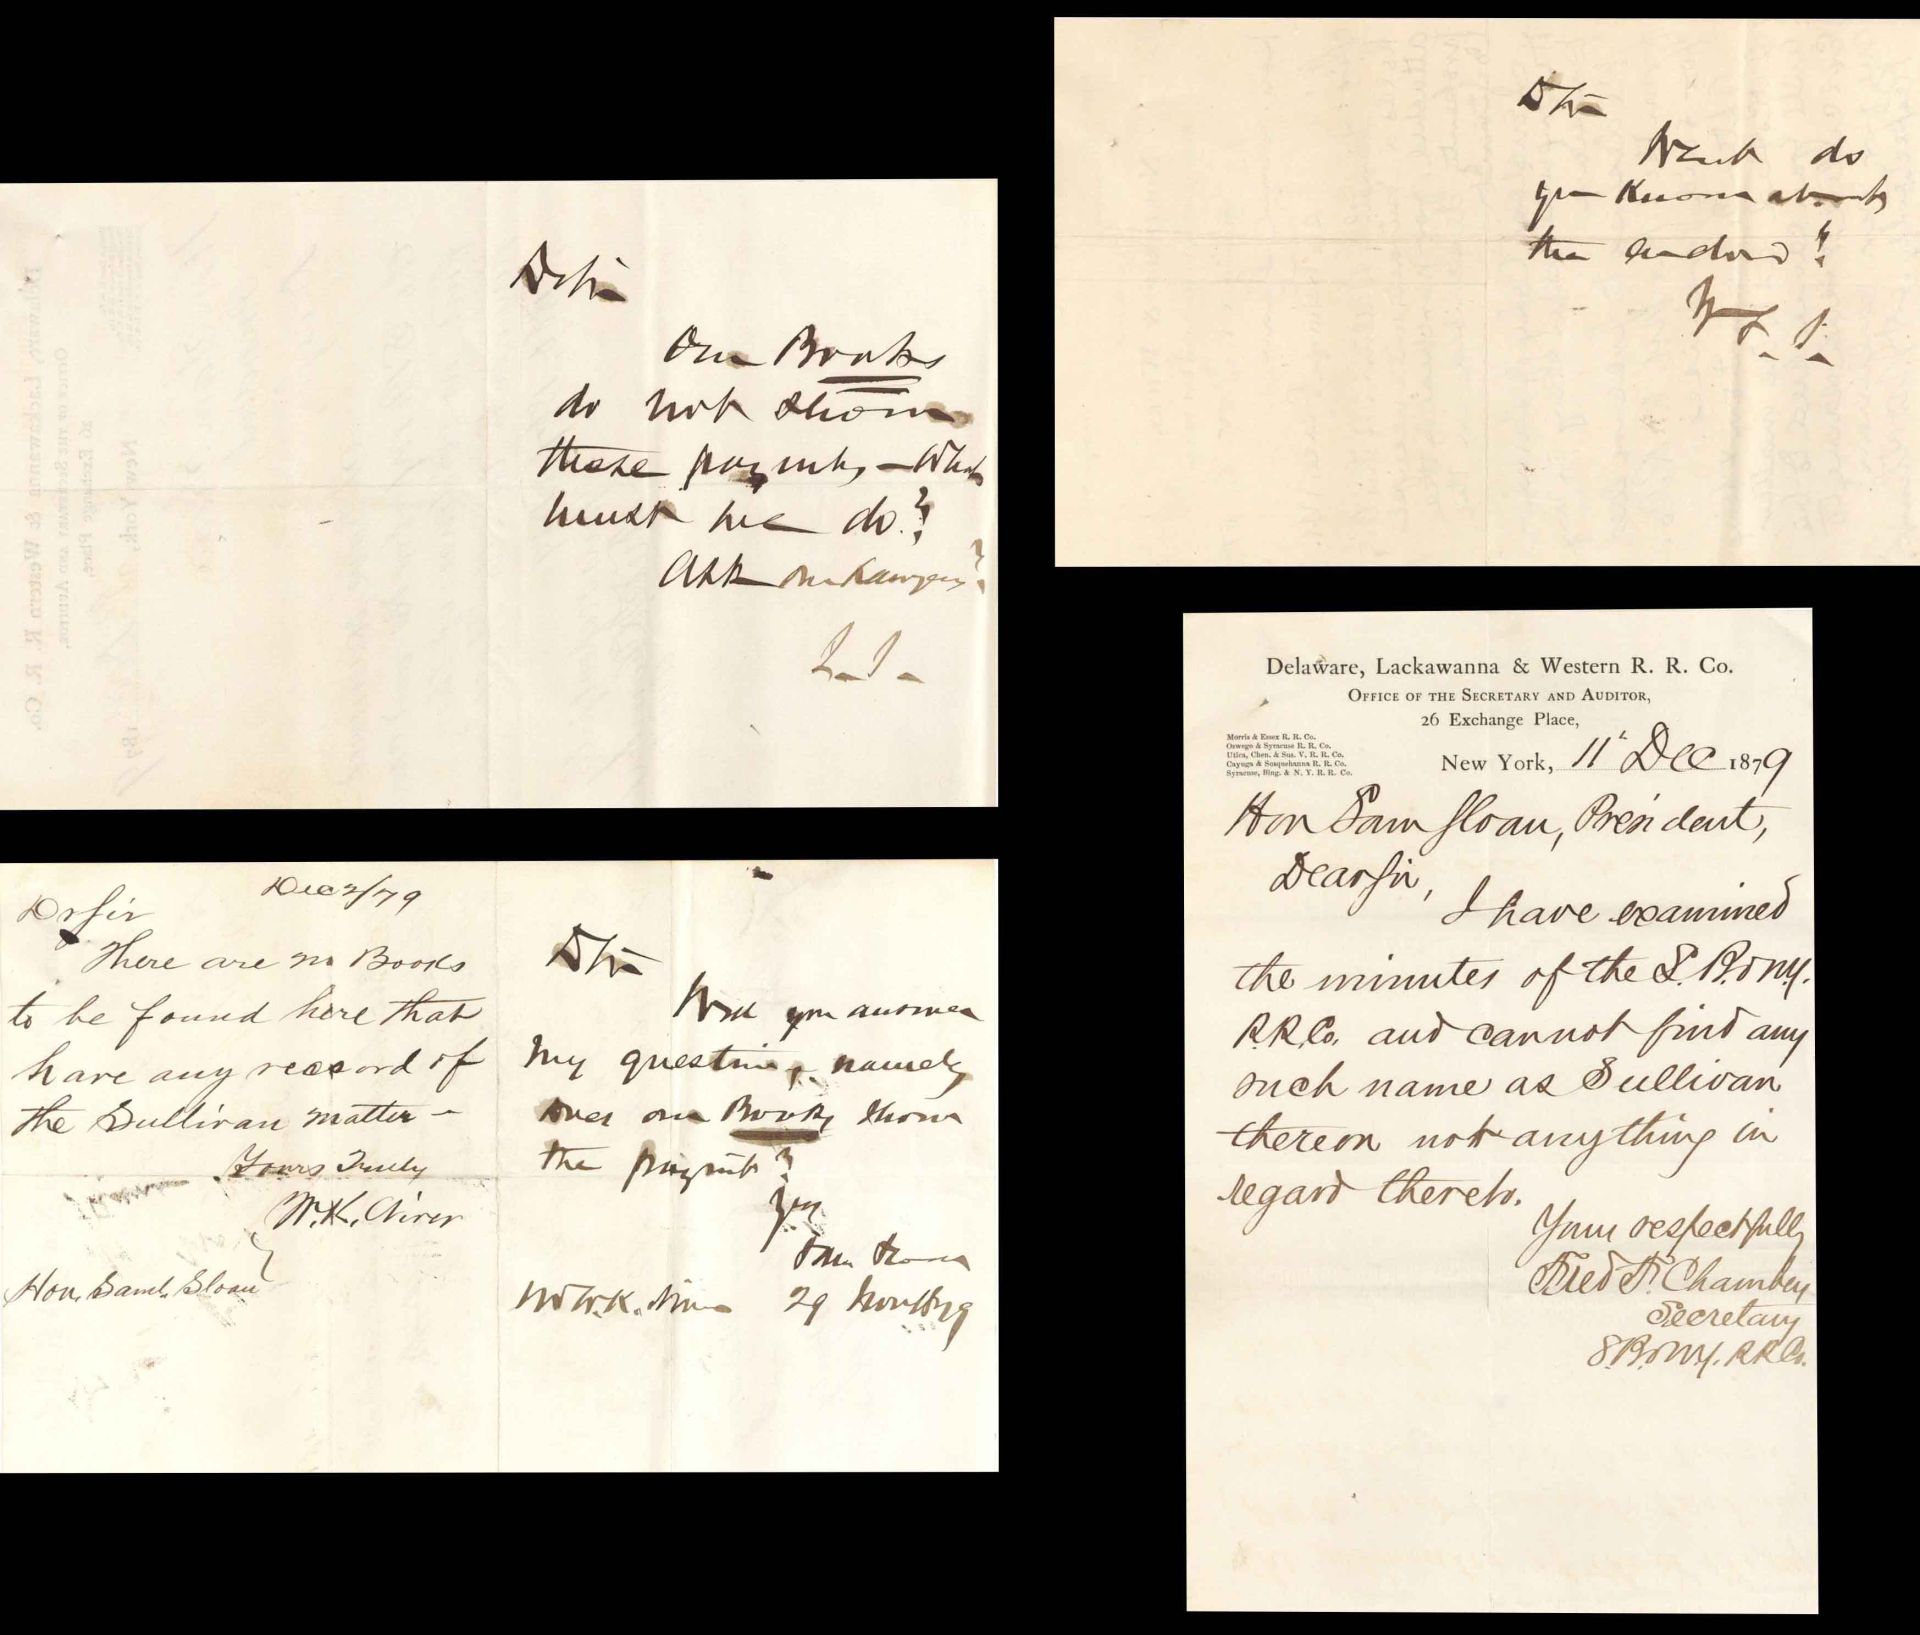 D Sir
Our Books
do not show
these paymnts – What
must we do?
Ask our Lawyers?
S. S.
D Sir
What do
you know about
the endors?
S. S.
Dec 2/79
Dr Sir
There are no Books
to be found here that
have any reccord of
the Sullivan matter –
Yours Truly
W.K.
Hon. Saml. Sloan
D Sir
Will you answer
my question, namely
does our Books show
the paymnt?
Yrs
Sam Sloan
W.K. 29 Nov /79
Delaware, Lackawanna & Western R. R. Co.
Office of the Secretary and Auditor,
26 Exchange Place,
Morris & Essex R. R. Co.
Oswego & Syracuse R. R. Co.
Utica, Chen. & Sus. V. R. R. Co.
Cayuga & Susquehanna R. R. Co.
Syracuse, Bing. & N. Y. R. R. Co.
New York, 11" Dec 1879
Hon Sam Sloan, President,
Dear Sir,
I have examined
the minutes of the S. B. & N.Y.
R.R. Co. and cannot find any
such name as Sullivan
thereon not anything in
regard thereto.
Yours respectfully
Fred F. Chambers
Secretary
S. B. & N.Y. R.R. Co.